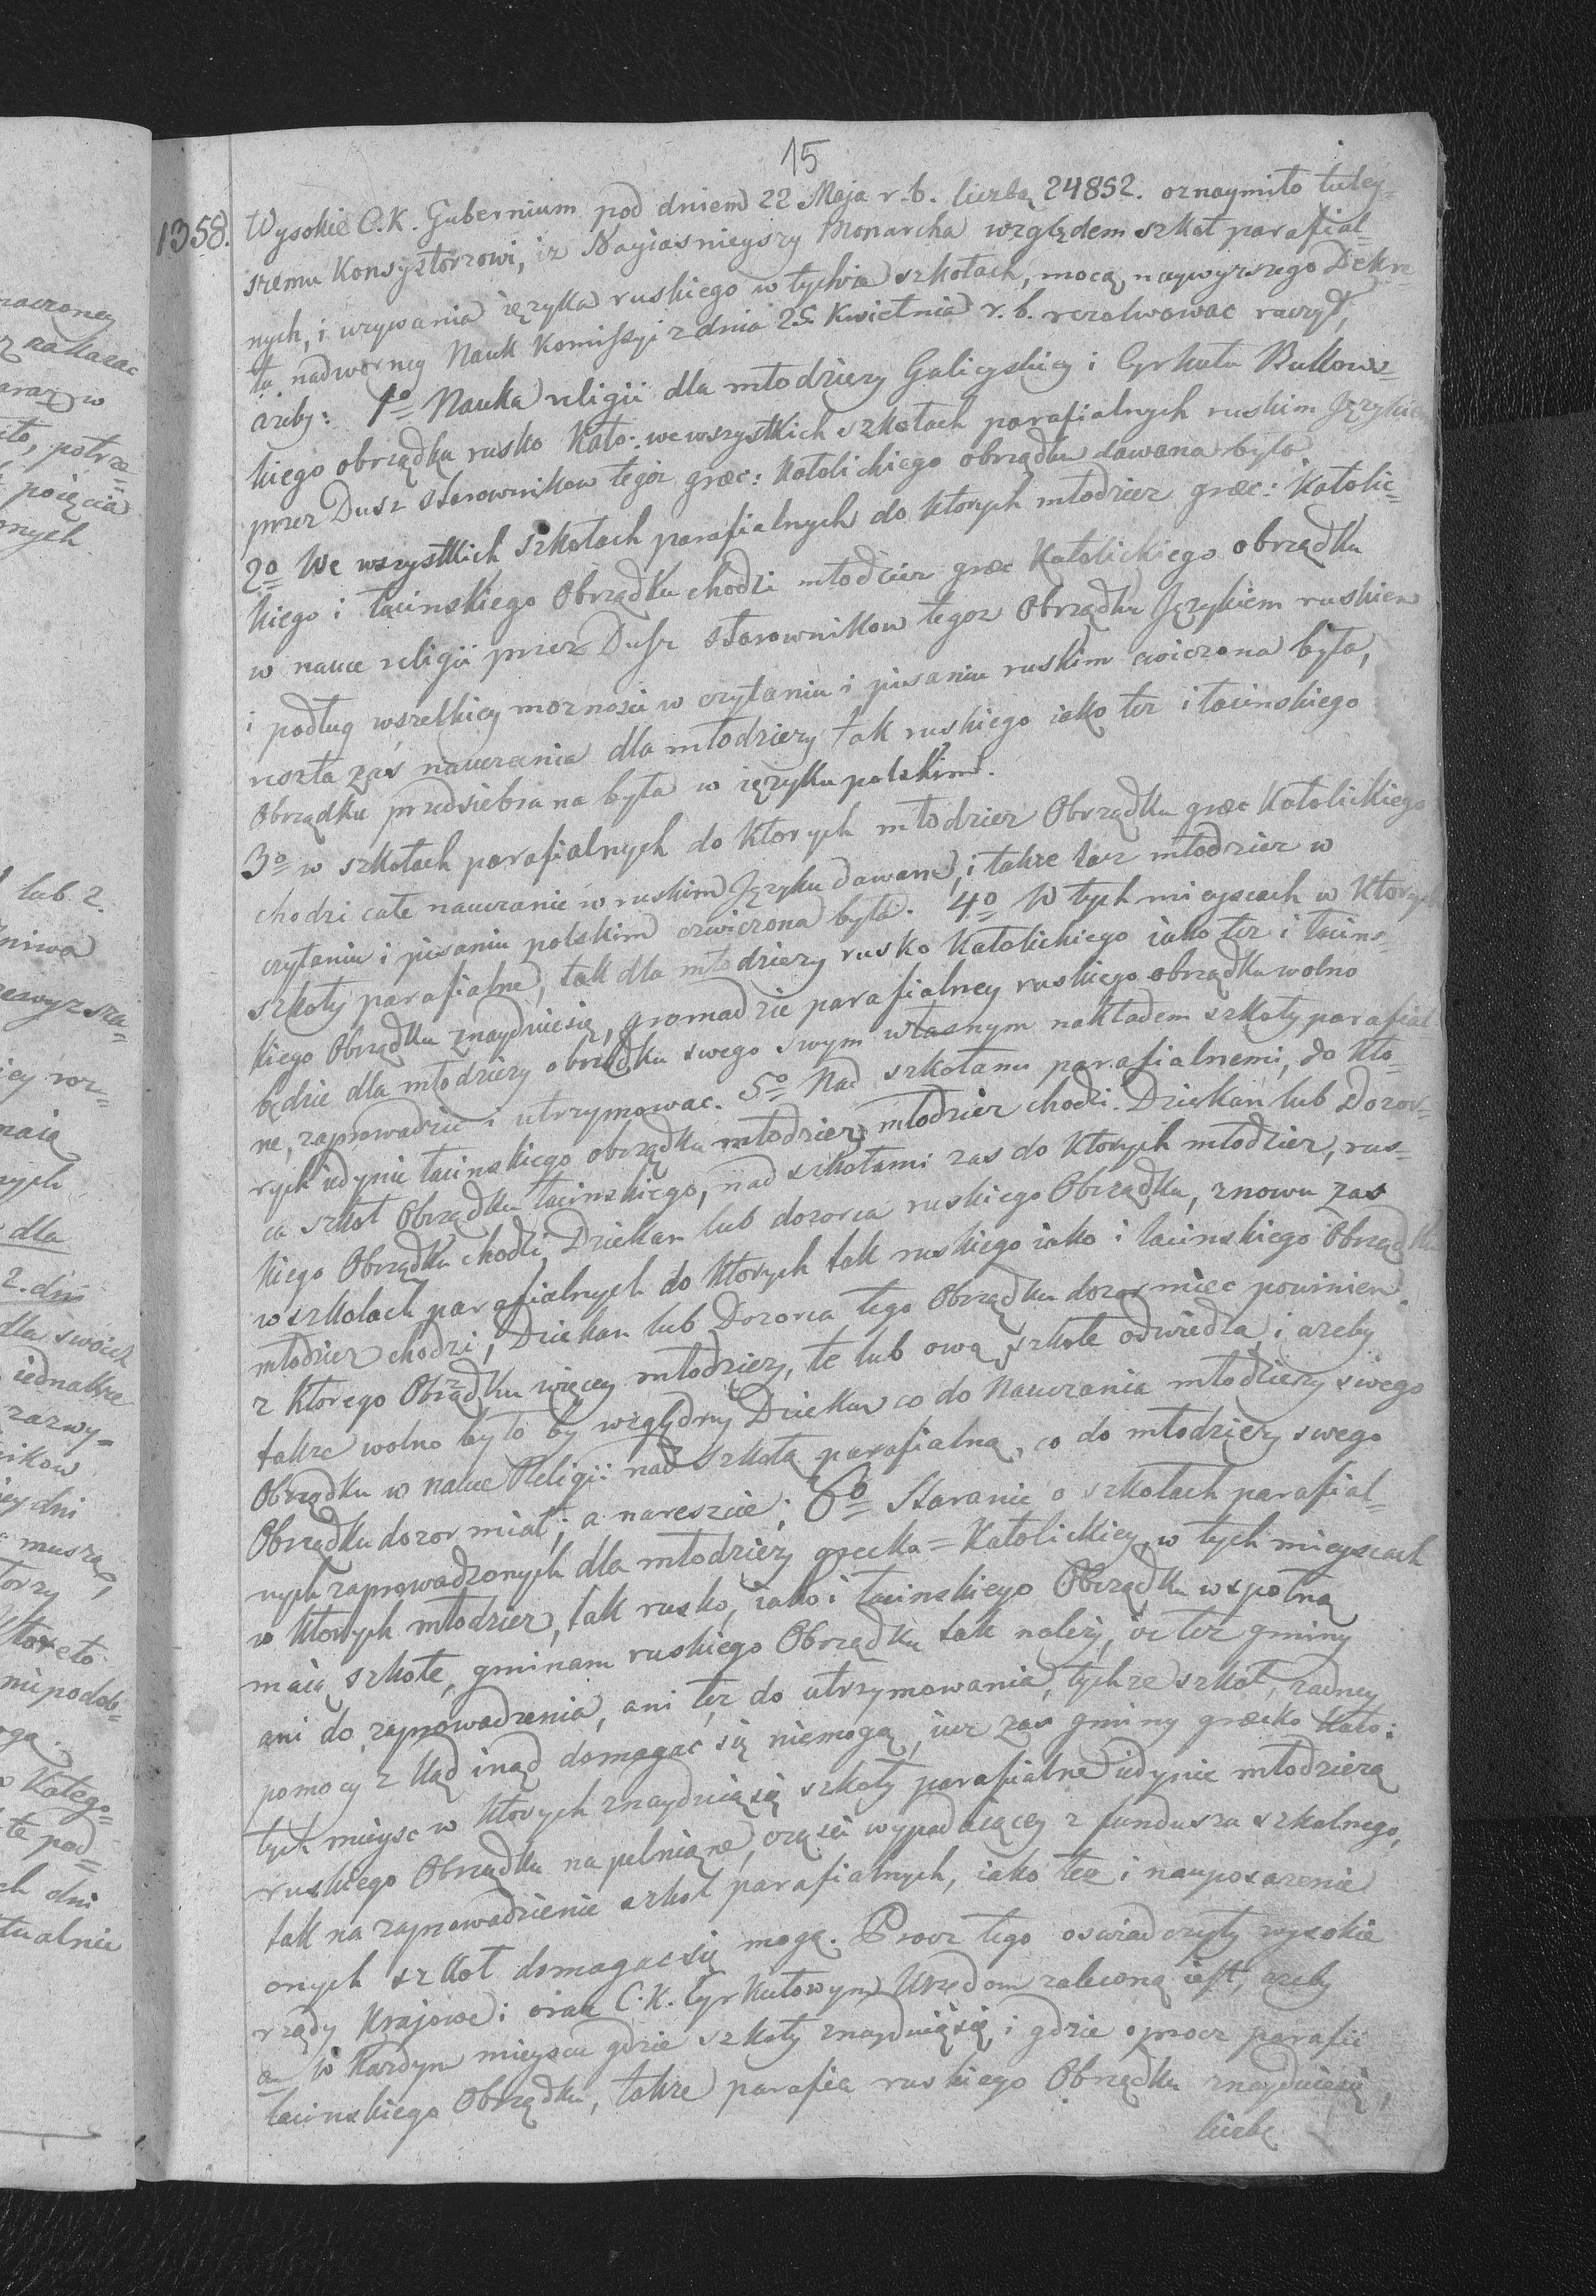 15
1358. Wysokie C.K. Gubernium pod dniem 22 Maja r.b. liczbą 24852. oznaymiło tutey=
szemu Konsystorzowi, iz Nayiasnieyszy Monarcha względem szkoł parafial=
nych, i uzywania ięzyka ruskiego w tychże szkołach, mocą naywyzszego Dekre
tu nadworney Nauk Komissyi z dnia 25. Kwietnia r.b. rezolwowac raczył,
azeby: 1o Nauka religii dla młodziezy Galicyskiey i Cyrkułu Bukows=
kiego obrządku rusko Kato: we wszystkich szkołach parafialnych ruskim Językiem
przez Dusz starownikow tegoz græc: Katolickiego obrządku dawana była.
2o We wszystkich szkołach parafialnych do ktorych młodziez græc: Katolic=
kiego i łacinskiego Obrządku chodzi młodziez græc Katolickiego obrządku
w nauce religii przez Dusz starownikow tegoz Obrządku Językiem ruskiem
i podług wszelkiey moznosci w czytaniu i pisaniu ruskim cwiczona była,
reszta zas nauczania dla młodziezy tak ruskiego iako tez i łacinskiego
Obrządku przedsiebrana była w ięzyku polskim.
3o w szkołach parafialnych do ktorych młodziez Obrządku græc Katolickiego
chodzi całe nauczanie w ruskim Języku dawane, i takze taz młodziez w
czytaniu i pisaniu polskim cwiczona była. 4o W tych mieyscach w Ktorych
szkoły parafialne, tak dla młodziezy rusko Katolickiego iako tez i łacins=
kiego Obrządku znaydziesię, gromadzie parafialney ruskiego obrządku wolno
będzie dla młodziezy obrządku swego swym własnym nakładem szkoły parafial
ne, zaprowadzic i utrzymowac. 5o Nad szkołami parafialnemi, do Kto=
rych iedynie łacinskiego obrządku młodziez młodziez chodzi. Dziekan lub Dozor=
ca szkoł Obrządku łacinskiego, nad szkołami zas do ktorych młodziez, rus=
kiego Obrządku chodzi, Dziekan lub dozorca ruskiego Obrządku, znowu zas
w szkołach parafialnych do ktorych tak ruskiego iako i łacinskiego Obrządku
młodziez chodzi, Dziekan lub Dozorca tego Obrządku dozor miec powinien.
z ktorego Obrządku więcey młodziezy, te lub ową szkołe odwiedza i azeby
takze wolno było by względny Dziekan co do Nauczania młodziezy swego
Obrządku w nauce Religii nad szkołą parafialną, co do młodziezy swego
Obrządku dozor miał; a nareszcie; 6o Staranie o szkołach parafial=
nych zaprowadzonych dla młodziezy grecka=Katolickiey, w tych mieyscach
w ktorych młodziez, tak rusko, iako i łacinskiego Obrządku wspolną
maią szkołe, gminam ruskiego Obrządku tak nalezy, iz tez gminy
ani do zaprowadzenia, ani tez do utrzymowania, tychze szkoł, zadney
pomocy z kąd inąd domagac się niemogą, iuz zas gminy græcko Kato:
tych mieysc w ktorych znayduią się szkoły parafialne iedynie młodziezą
ruskiego Obrządku napełniane, częsci wypadaiącey z funduszu szkolnego,
tak na zaprowadzienie szkoł parafialnych, iako tez i nauposazenie
onych szkoł domagac się mogą. Procz tego oswiadczyły wysokie
rządy Krajowe; oraz C.K. Cyrkułowym Urzędom zaleconą iest, azeby
a, w Kazdym mieyscu gdzie szkoły znayduiąsię, i gdzie oprocz parafii
łacinskiego Obrządku, takze parafia ruskiego Obrządku znayduiesię,
liczbę